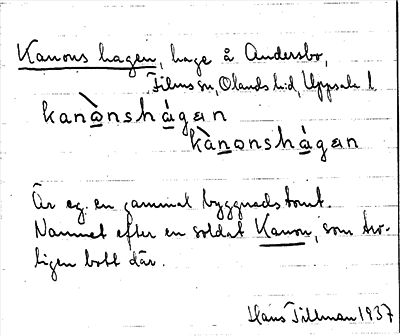 Kanons hagen, hage å Andersbo,
Films sn, Olands hd, Uppsala l
kanònshágan
kànonshágan
Är eg. en gammal byggnadstomt.
Namnet efter en soldat Kanon, som tro-
ligen bott där.
Hans Tillman 1937